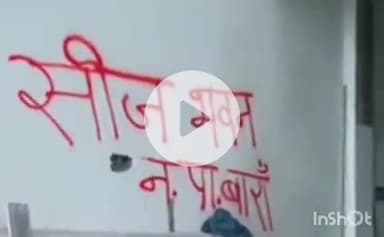 सीज भवन
न.पा.बाराँ
InShOt